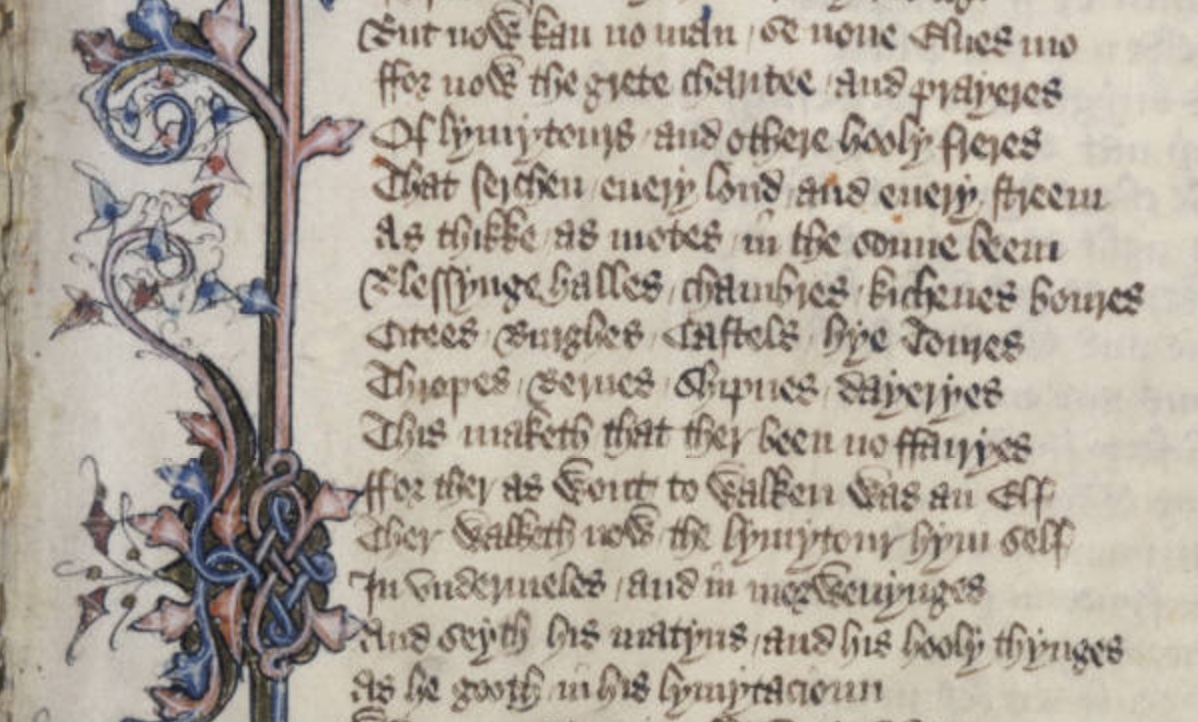 But now kan no man / se none Elues mo
ffor now the grete charitee / and prayeres
Of lymytours / and othere hooly freres
That serchen / euery lond / and euery streem
As thikke / as motes / in the sonne beem
Blessynge halles / chambres / kichenes boures
Citees / Burghes / Castels / hye Toures
Thropes / Bernes / Shipnes / dayeryes
This maketh that ther been no ffairyes
ffor ther as wont to walken was an Elf
Ther walketh now / the lymytour hym self
In vndermeles / and in morwenynges
And seyth his matyns / and his hooly thynges
As he gooth / in his lymytacioun